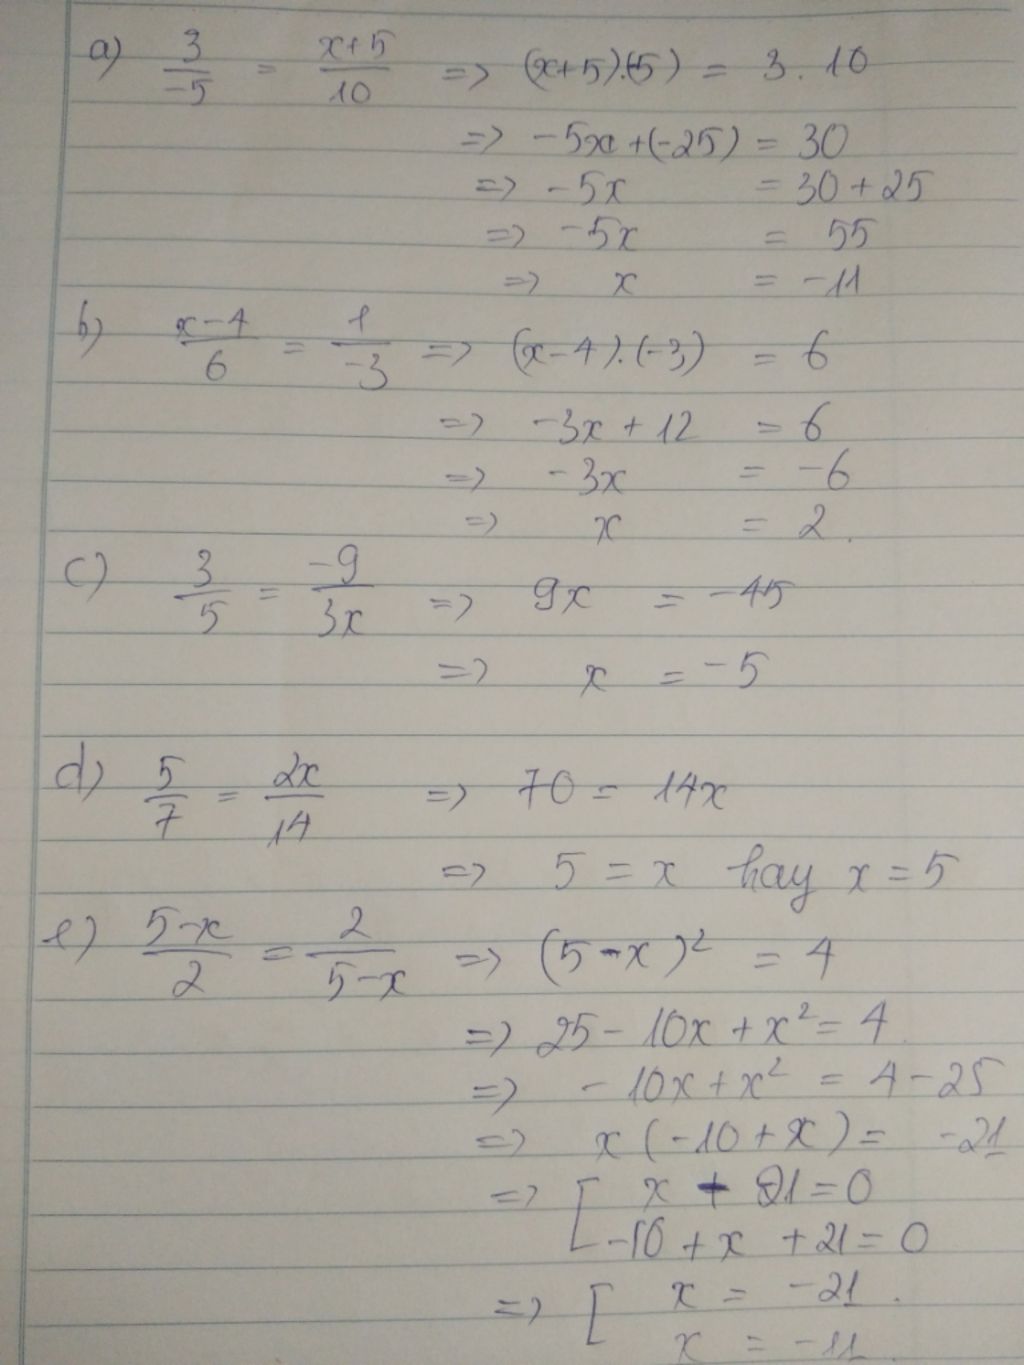 a) 3/-5 = x+5/10 => (x+5).(-5) = 3.10
=> -5x+(-25) = 30
=> -5x = 30+25
=> -5x = 55
=> x = -11
b) x-4/6 = 1/-3 => (x-4).(-3) = 6
=> -3x + 12 = 6
=> -3x = -6
=> x = 2.
c) 3/5 = -9/3x => 9x = -45
=> x = -5
d) 5/7 = 2x/14 => 70 = 14x
=> 5 = x hay x = 5
e) 5-x/2 = 2/5-x => (5-x)² = 4
=> 25 - 10x + x² = 4
=> -10x + x² = 4-25
=> x(-10+x) = -21
=> [ x + 21 = 0
-10 + x + 21 = 0
=> [ x = -21.
x = -11